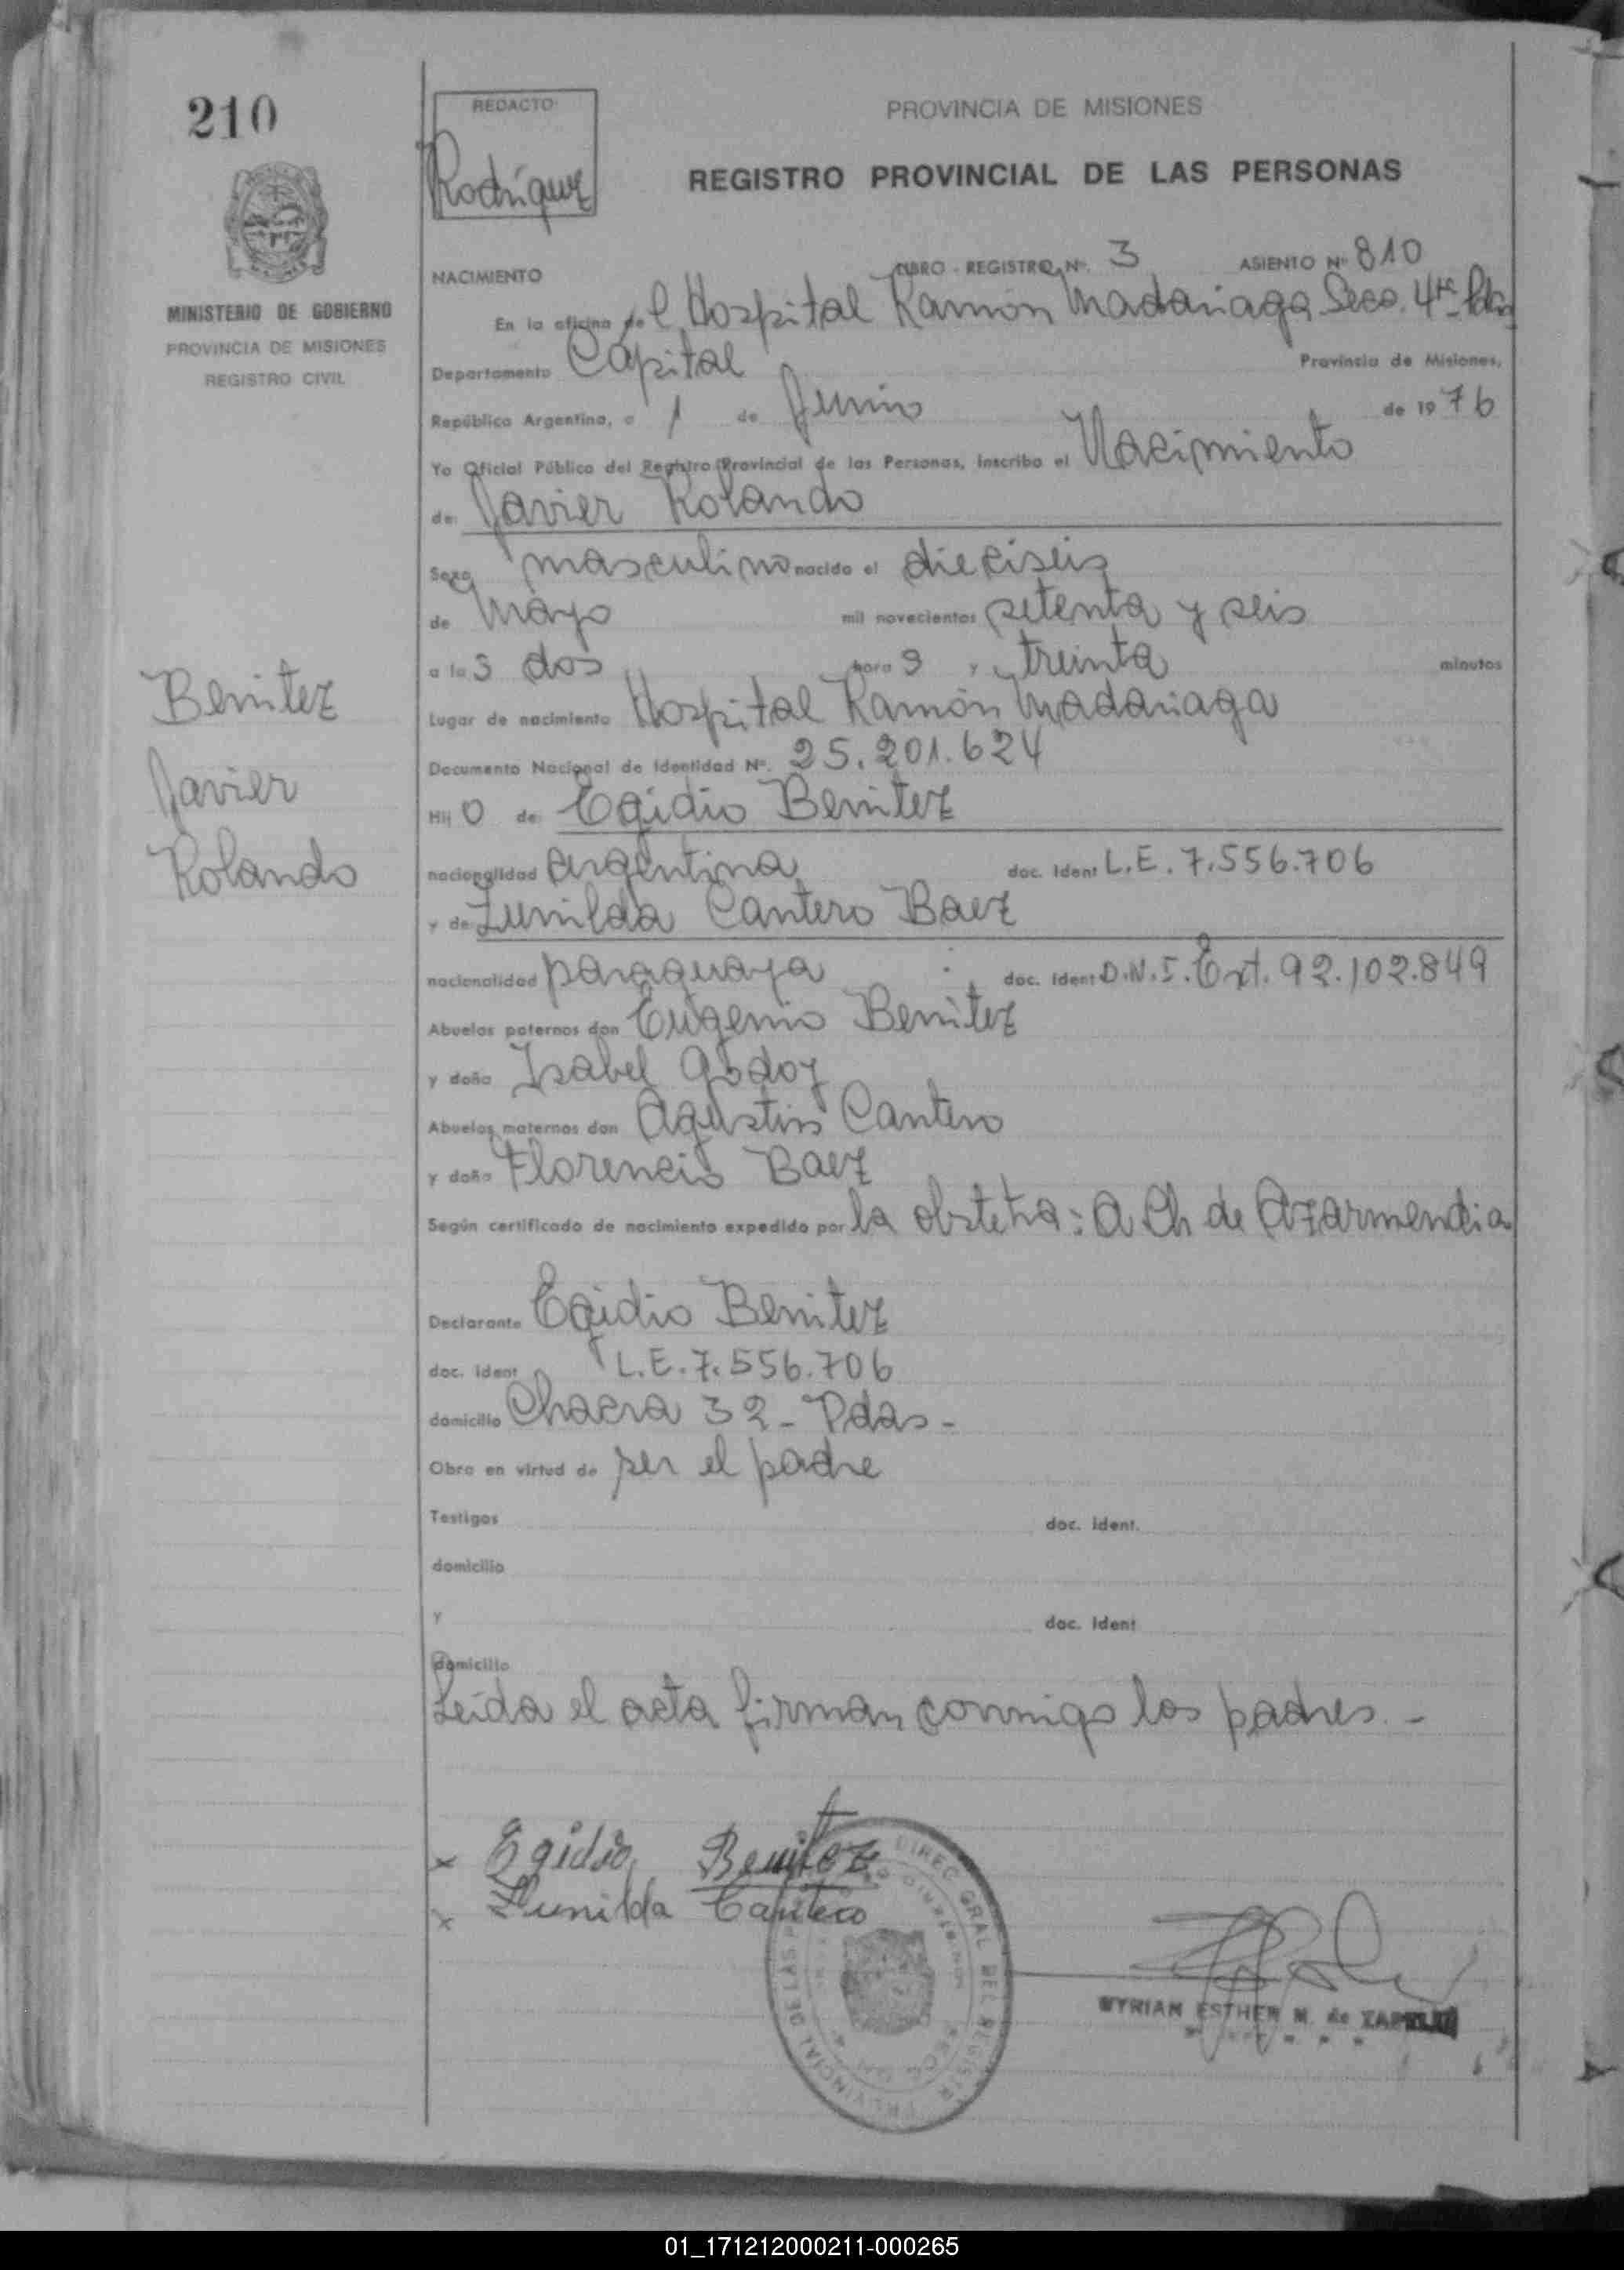 210
REDACTO:
Rodríguez
PROVINCIA DE MISIONES
REGISTRO PROVINCIAL DE LAS PERSONAS
MINISTERIO DE GOBIERNO
PROVINCIA DE MISIONES
REGISTRO CIVIL
NACIMIENTO
LIBRO - REGISTRO Nº. 3 ASIENTO Nº 810
En la oficina del Hospital Ramón Madariaga Secc. 4ta. Pdas
Departamento Capital Provincia de Misiones,
República Argentina, a 1 de Junio de 1976
Yo Oficial Público del Registro Provincial de las Personas, inscribo el Nacimiento
de: Javier Rolando
Sexo masculino nacido el dieciseis
de Mayo mil novecientos setenta y seis
a las dos horas y treinta minutos
Lugar de nacimiento Hospital Ramón Madariaga
Documento Nacional de Identidad Nº. 25.201.624
Hijo de: Egidio Benitez
nacionalidad argentina doc. Ident L.E. 7.556.706
y de Zunilda Cantero Baez
nacionalidad paraguaya doc. Ident D.N.I. Ext. 92.102.849
Abuelos paternos don Eugenio Benitez
y doña Isabel Godoy
Abuelos maternos don Agustin Cantero
y doña Florencia Baez
Según certificado de nacimiento expedido por la obstetra: A Ch de Azarmendia
Benitez
Javier
Rolando
Declarante Egidio Benitez
doc. Ident L.E. 7.556.706
domicilio Chacra 32 - Pdas -
Obra en virtud de ser el padre
Testigos doc. Ident.
domicilio
y doc. Ident
domicilio
Leída el acta firman conmigo los padres. -
x Egidio Benitez
x Zunilda Cantero
DIREC. GRAL DEL REGISTR PROVINCIAL DE LAS
MYRIAN ESTHER M. de
01_171212000211-000265